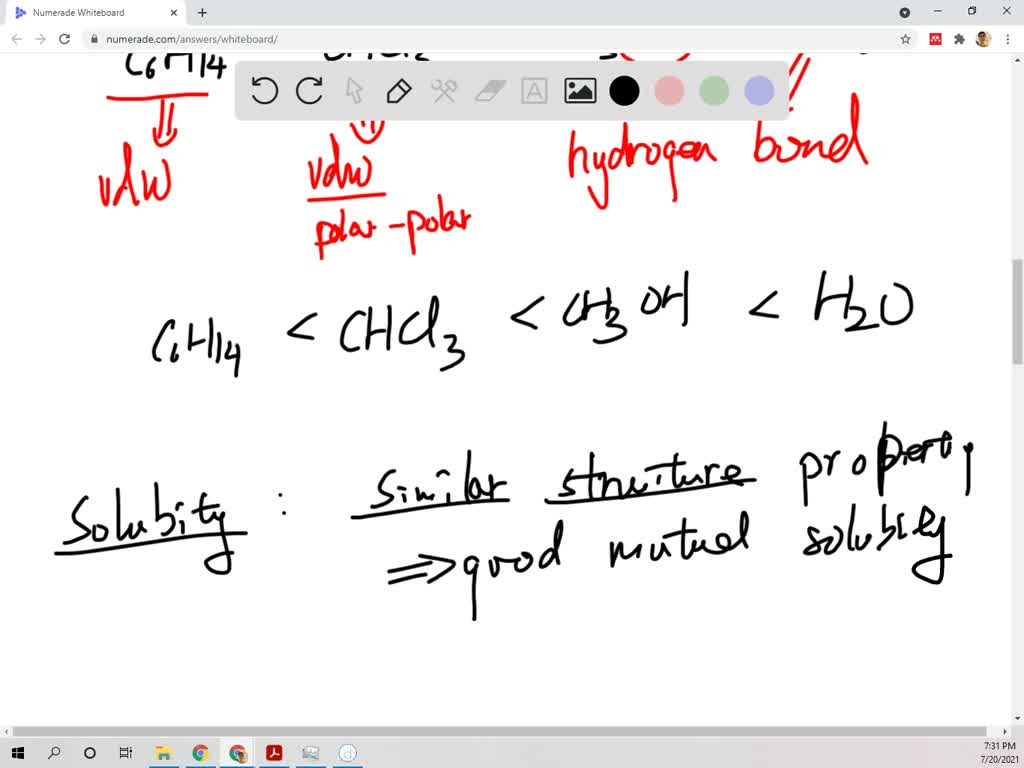 Numerade Whiteboard
numerade.com/answers/whiteboard/
C6H14
A
vdw
vdw
polar-polar
hydrogen bond
C6H14 < CHCl3 < CH3OH < H2O
Solubity : Similar struiture property
⇒ good mutual solubity
7:31 PM
7/20/2021